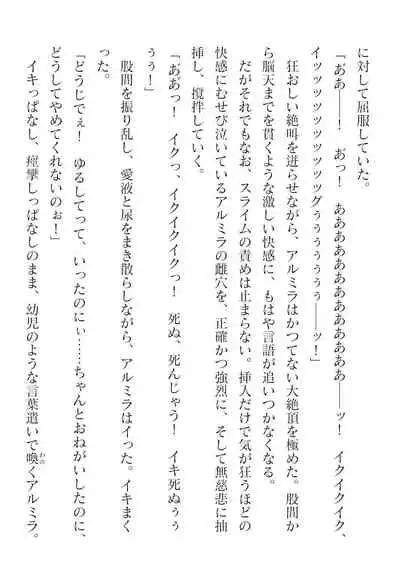 に対して屈服していた。
「あ゛あ゛――！　お゛っ！　ああああああああああああ――ッ！　イクイクイク、
イッツッツッツッツッツグぅぅぅぅぅぅ――ッ！」
狂おしい絶叫を迸らせながら、アルミラはかつてない大絶頂を極めた。股間か
ら脳天までを貫くような激しい快感に、もはや言語が追いつかなくなる。
だがそれでもなお、スライムの責めは止まらない。挿入だけで気が狂うほどの
快感にむせび泣いているアルミラの雌穴を、正確かつ強烈に、そして無慈悲に抽
挿し、撹拌していく。
「あ゛あ゛っ！　イクっ、イクイクイクっ！　死ぬ、死んじゃう！　イキ死ぬぅぅ
ぅぅ！」
股間を振り乱し、愛液と尿をまき散らしながら、アルミラはイった。イキまく
った。
「どうじでぇ！　ゆるしてって、いったのにぃ……ちゃんとおねがいしたのに、
どうしてやめてくれないのぉ！」
イキっぱなし、痙攣しっぱなしのまま、幼児のような言葉遣いで喚くアルミラ。
わめ